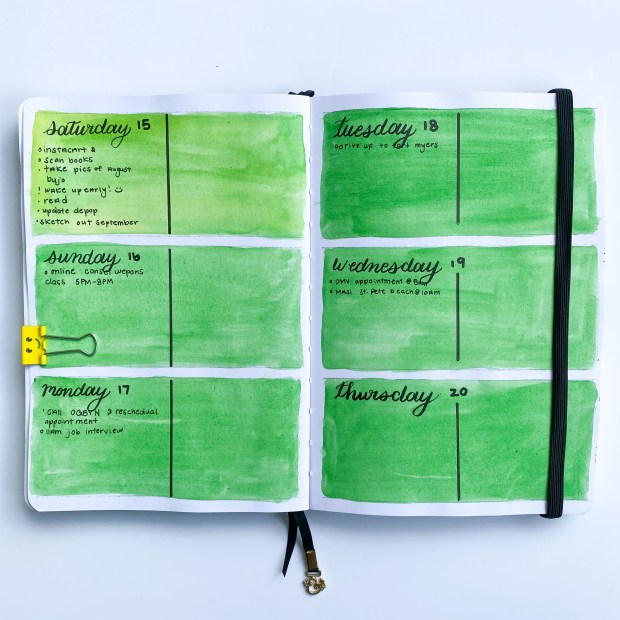 saturday 15
instacart &
scan books
take pics of August
bujo
! wake up early! ☺
read
update depop
sketch out september
sunday 16
online
class 5PM-8PM
monday 17
call OGBYN 2 reschedual
appointment
11am job interview
tuesday 18
drive up to fort myers
wednesday 19
DMV appointment @
St. Pete beach @ 10am
thursday 20